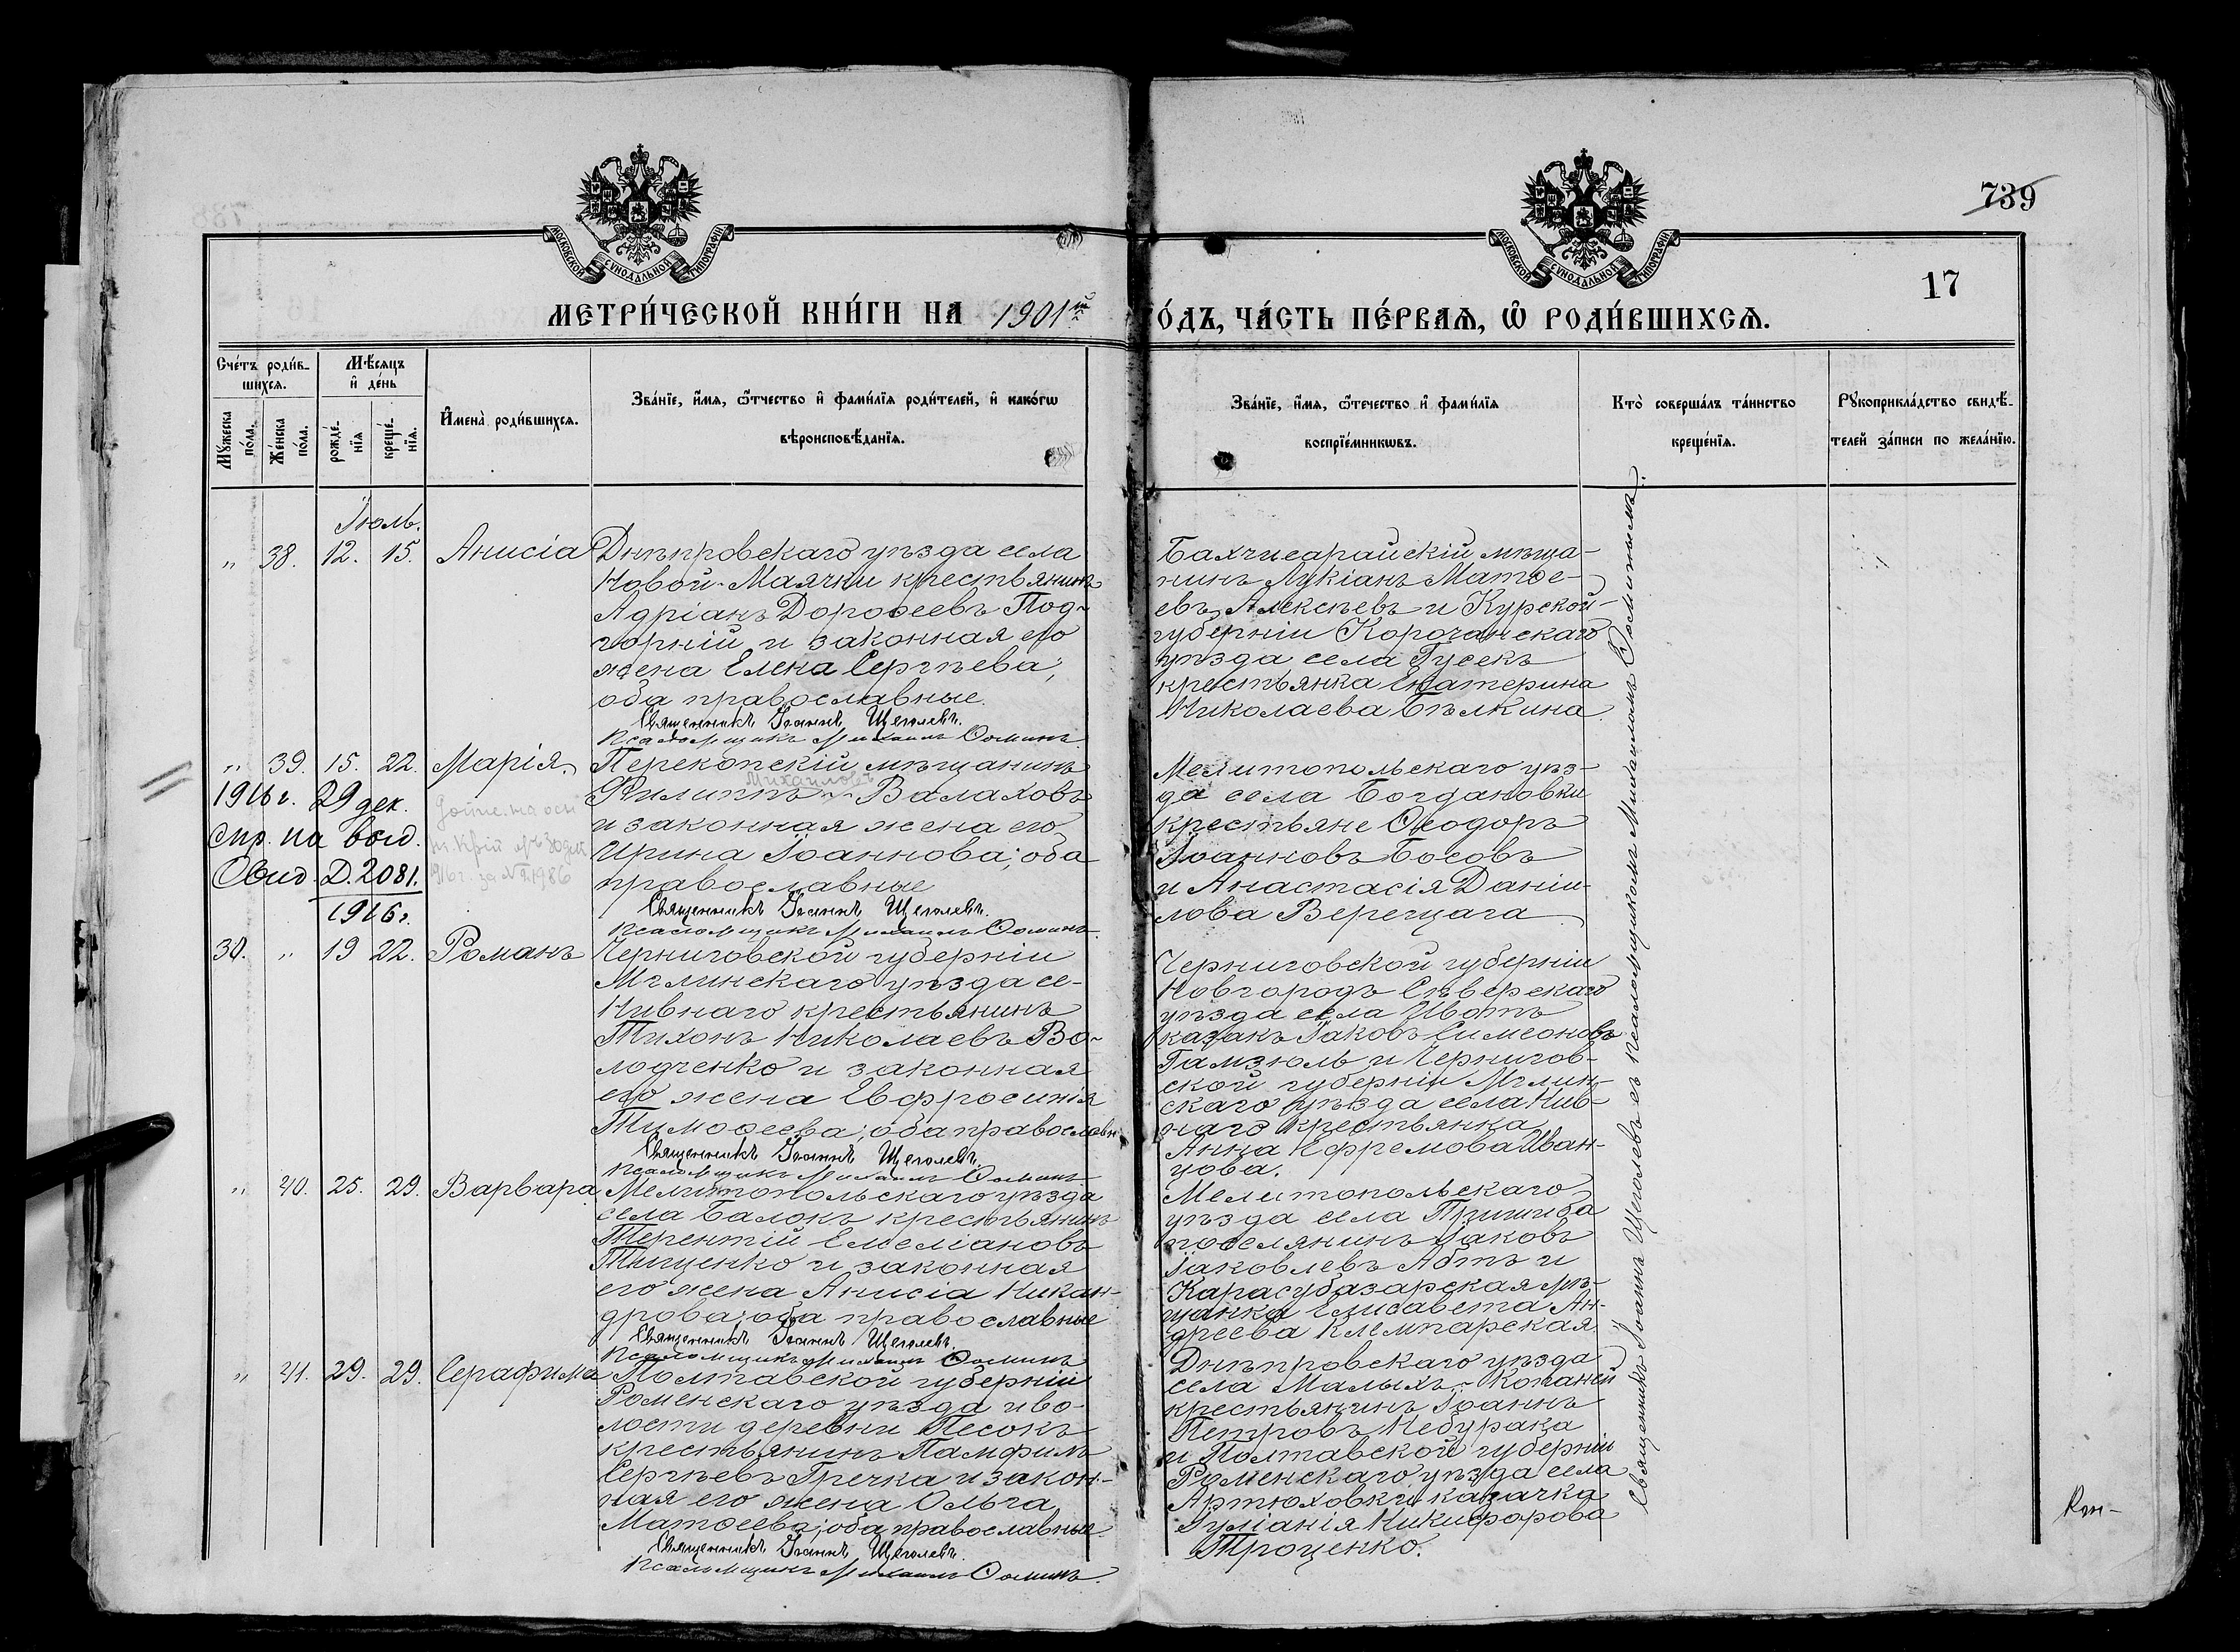 739
17
МОСКОВСКОЙ СѴНОДАЛЬНОЙ ТИПОГРАФІИ
МОСКОВСКОЙ СѴНОДАЛЬНОЙ ТИПОГРАФІИ
МЕТРИ́ЧЕСКОЙ КНИ́ГИ НА 1901й ГО́ДЪ, ЧА́СТЬ ПЕ́РВАѦ, Ѡ҆ РОДИ́ВШИХСѦ.
Сче́тъ роди́в-
шихсѧ.
Мꙋ́жеска по́ла.
Же́нска по́ла.
Мѣ́сѧцъ
и҆ де́нь
рожде́-
нїѧ
креще́-
нїѧ.
И҆мена̀ роди́вшихсѧ.
Зва́нїе, и҆́мѧ, ѻ҆́тчество и҆ фами́лїѧ роди́телей, и҆ како́гѡ
вѣроисповѣ́данїѧ.
Зва́нїе, и҆́мѧ, ѻ҆те́чество и҆ фами́лїѧ
воспрїе́мникѡвъ.
Кто̀ соверша́лъ та́инство
креще́нїѧ.
Рꙋкоприкла́дство свидѣ́-
телей за́писи по жела́нїю.
Іюль.
" 38. 12. 15. Анисія
Днѣпровскаго уѣзда села
Новой-Маячки крестьянинъ
Адріанъ Дороѳеевъ Под-
горній и законная его
жена Елена Сергѣева,
оба православные.
Священникъ Іоаннъ Щеголевъ.
Псаломщикъ Михаилъ Ѳоминъ.
Бахчисарайскій мѣща-
нинъ Лукіанъ Матѳе-
евъ Алексѣевъ и Курской
губерніи Корочанскаго
уѣзда села Гусекъ
крестьянка Екатерина
Николаева Бѣлкина.
" 39. 15. 22. Марія.
1916 г. 29 дек.
Спр. на выд.
Свид. Д. 2081.
1916 г.
Перекопскій мѣщанинъ
Михайловъ
Филиппъ Валаховъ
и законная жена его
Ирина Іоаннова; оба
православные
Священникъ Іоаннъ Щеголевъ.
Псаломщикъ Михаилъ Ѳоминъ.
Мелитопольскаго уѣз-
да села Богдановки
крестьяне Ѳеодоръ
Іоанновъ Босовъ
и Анастасія Даніи-
лова Верещага
30. " 19 22. Романъ
Черниговской губерніи
Мглинскаго уѣзда се-
Нивнаго крестьянинъ
Тихонъ Николаевъ Во-
лодченко и законная
его жена Евфросинія
Тимоѳеева; оба православн
Священникъ Іоаннъ Щеголевъ.
Псаломщикъ Михаилъ Ѳоминъ
Черниговской губерніи
Новгородъ Сѣверскаго
уѣзда села Ивотъ
казакъ Іаковъ Симеоновъ
Гамзюль и Чернигов-
ской губерніи Мглин-
скаго уѣзда села Нив-
наго крестьянка
Анна Ефремова Иван-
цова.
" 40. 25. 29. Варвара
Мелитопольскаго уѣзда
села Балокъ крестьянинъ
Терентій Емеліановъ
Тищенко и законная
его жена Анисія Никан-
дрова; оба православные
Священникъ Іоаннъ Щеголевъ.
Псаломщикъ Михаилъ Ѳоминъ
Мелитопольскаго
уѣзда села Пришиба
поселянинъ Іаковъ
Іаковлевъ Абтъ и
Карасубазарская мѣ-
щанка Елисавета Ан-
дреева Клемпарская.
" 41. 29. 29. Серафима
Полтавской губерніи
Роменскаго уѣзда и во-
лости деревни Песокъ
крестьянинъ Памфилъ
Сергѣевъ Гречка и закон-
ная его жена Ольга
Матѳеева; оба православные.
Священникъ Іоаннъ Щеголевъ.
Псаломщикъ Михаилъ Ѳоминъ.
Днѣпровскаго уѣзда
села Малыхъ-Копаней
крестьянинъ Іоаннъ
Петровъ Небурака
и Полтавской губерніи
Роменскаго уѣзда села
Артюховки казачка
Іуліанія Никифорова
Троценко.
Священникъ Іоаннъ Щеголевъ съ псаломщикомъ Михаиломъ Ѳоминымъ.